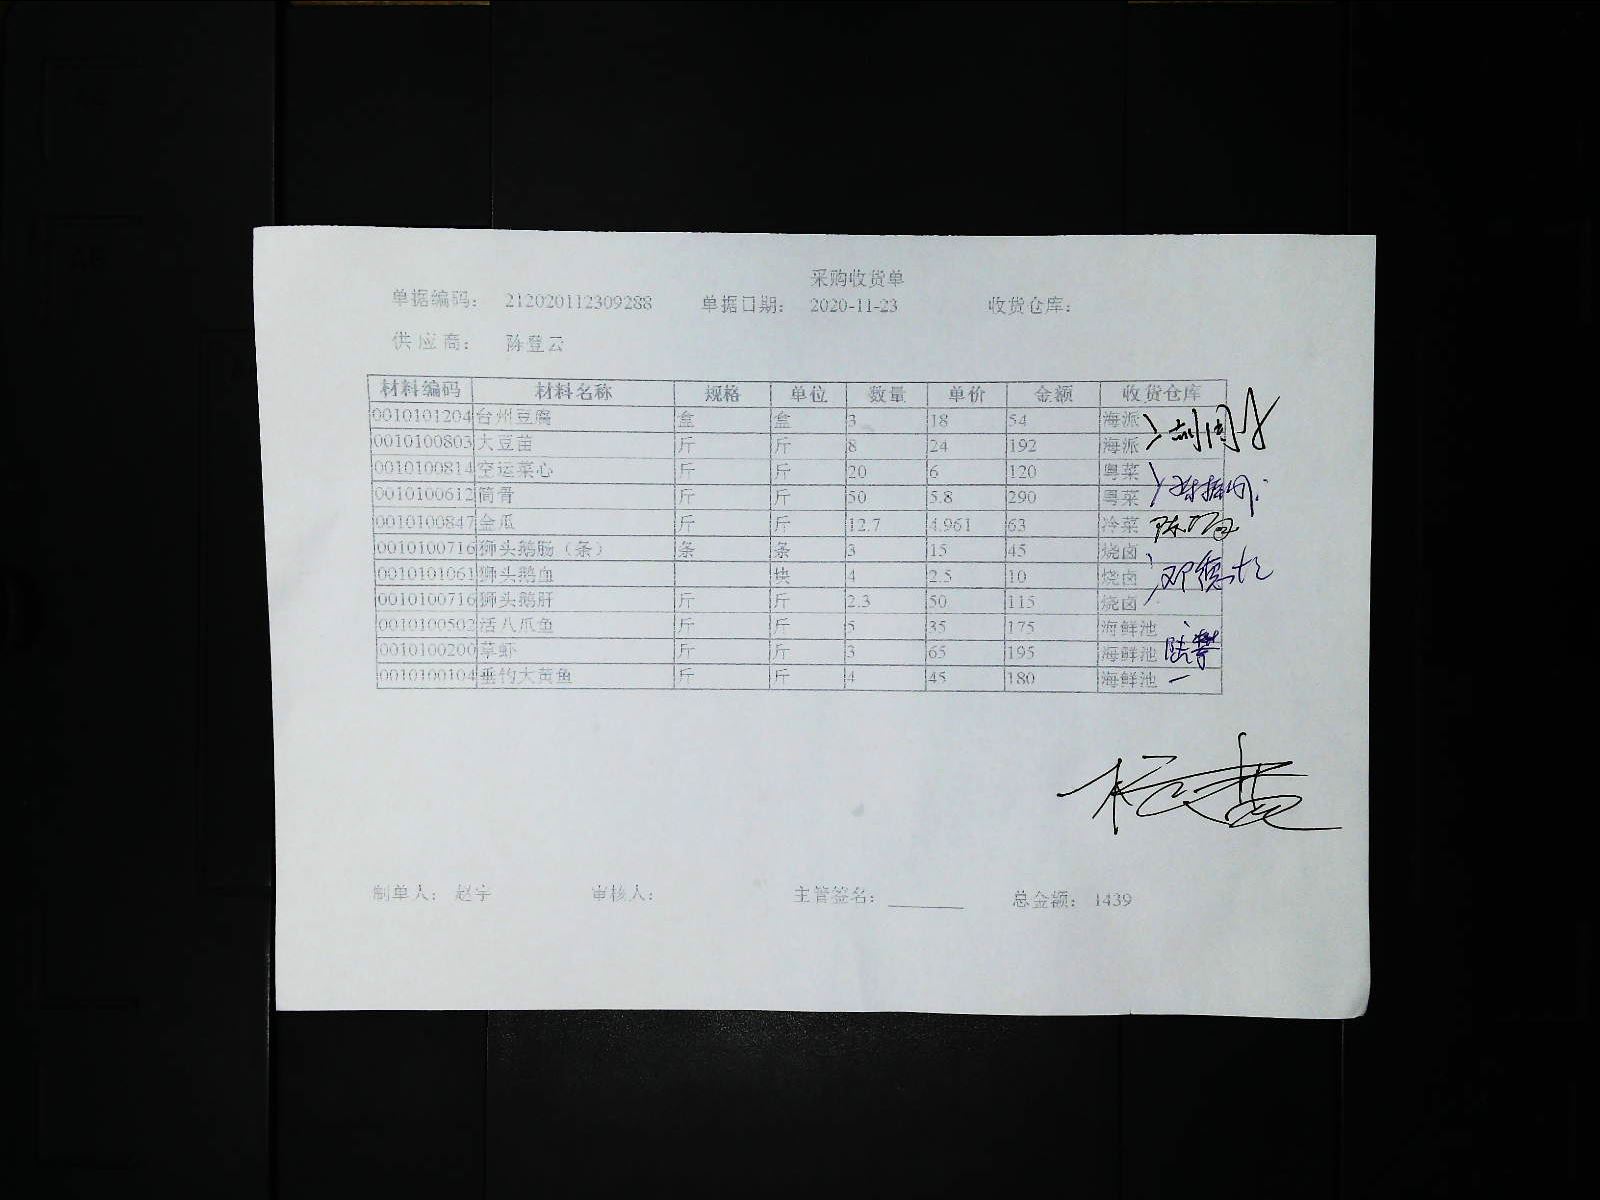 采购收货单
单据编码: 212020112309288 单据日期: 2020-11-23 收货仓库:
供应商: 陈登云
材料编码 材料名称 规格 单位 数量 单价 金额 收货仓库
0010101204 台州豆腐 盒 盒 3 18 54 海派
0010100803 大豆苗 斤 斤 8 24 192 海派
0010100814 空运菜心 斤 斤 20 6 120 粤菜
0010100612 筒骨 斤 斤 50 5.8 290 粤菜
0010100847 金瓜 斤 斤 12.7 4.961 63 冷菜
0010100716 狮头鹅肠（条） 条 条 3 15 45 烧卤
0010101061 狮头鹅血 块 4 2.5 10 烧卤
0010100716 狮头鹅肝 斤 斤 2.3 50 115 烧卤
0010100502 活八爪鱼 斤 斤 5 35 175 海鲜池
0010100200 草虾 斤 斤 3 65 195 海鲜池
0010100104 垂钓大黄鱼 斤 斤 4 45 180 海鲜池
制单人: 赵宇 审核人: 主管签名: 总金额: 1439